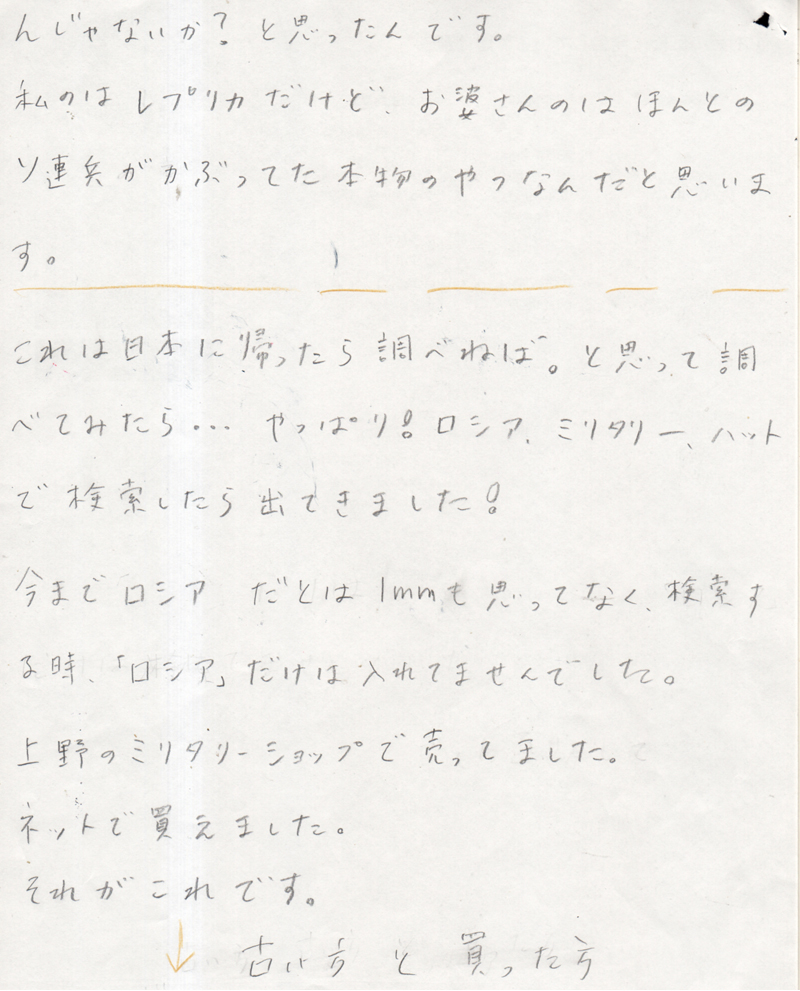 んじゃないか？と思ったんです。
私のは レプリカだけど、お婆さんのは ほんとの
ソ連兵がかぶってた本物のやつなんだと思いま
す。
これは日本に帰ったら調べねば。と思って調
べてみたら... やっぱり！ロシア、ミリタリー、ハット
で検索したら出てきました！
今までロシア だとは1mmも思ってなく、検索す
る時、「ロシア」だけは入れてませんでした。
上野のミリタリーショップで売ってました。
ネットで買えました。
それがこれです。
↓ 古い方と買った方